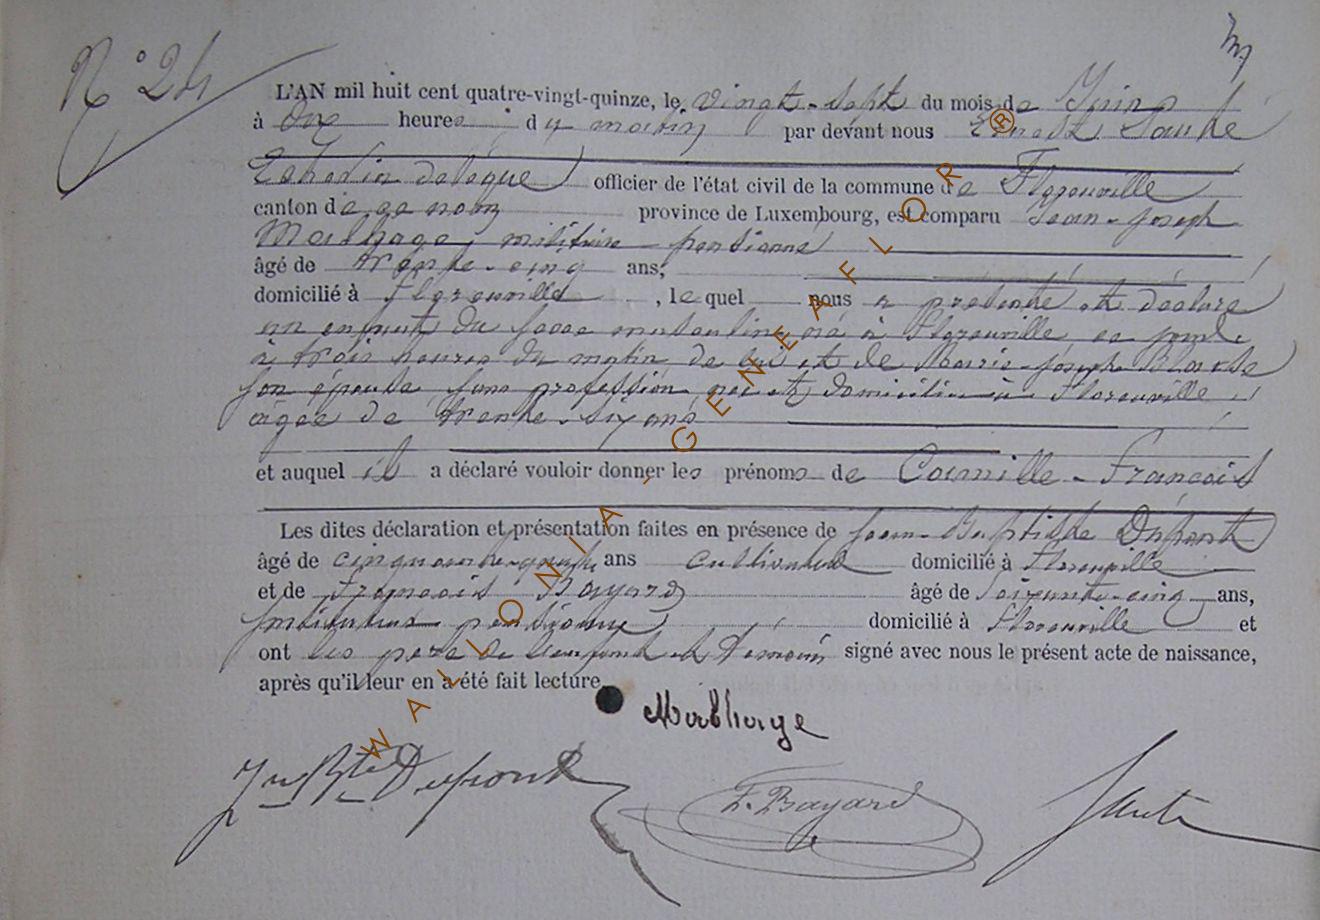 N° 24
L'AN mil huit cent quatre-vingt-quinze, le vingt-sept du mois de Juin
à onze heures du matin par devant nous Ernest Sauté
Echevin délégué officier de l'état civil de la commune de Florenville
canton de ce nom province de Luxembourg, est comparu Jean-Joseph
militaire pensionné
âgé de trente-cinq ans,
domicilié à Florenville, lequel nous a présenté et déclaré
un enfant du sexe masculin né à Florenville, ce jour
à trois heures du matin de lui et de Marie-Joseph
son épouse sans profession née et domiciliée à Florenville
agée de trente-six ans
et auquel il a déclaré vouloir donner les prénoms de Camille-François
Les dites déclaration et présentation faites en présence de Jean-Baptiste Dupont
âgé de ans cultivateur domicilié à Florenville
et de François Bayard âgé de soixante-cinq ans,
instituteur pensionné domicilié à Florenville et
ont les père de l'enfant et témoins signé avec nous le présent acte de naissance,
après qu'il leur en a été fait lecture.
Jn Bte Dupont
F. Bayard
Sauté
WALLONIA-GENEAFLOR®